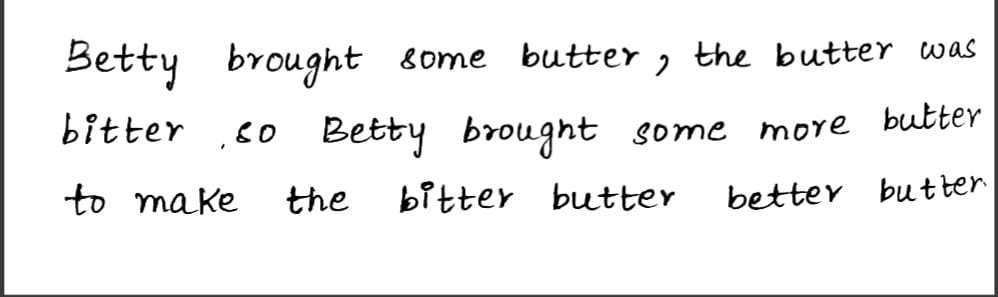 Betty brought some butter, the butter was
bitter, so Betty brought some more butter
to make the bitter butter better butter